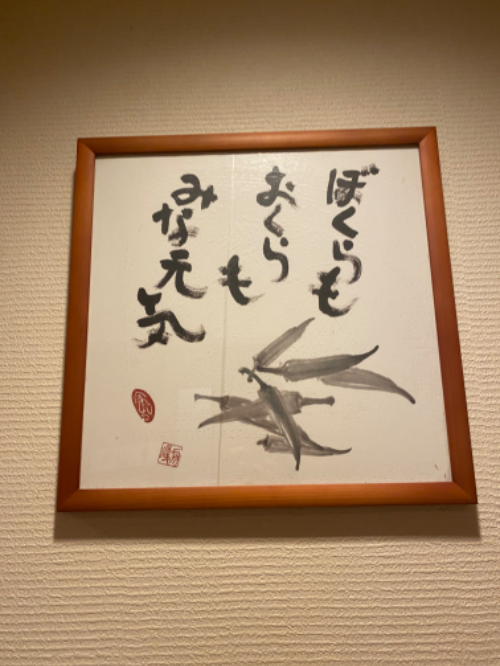 ぼくらも
おくらも
みな元気